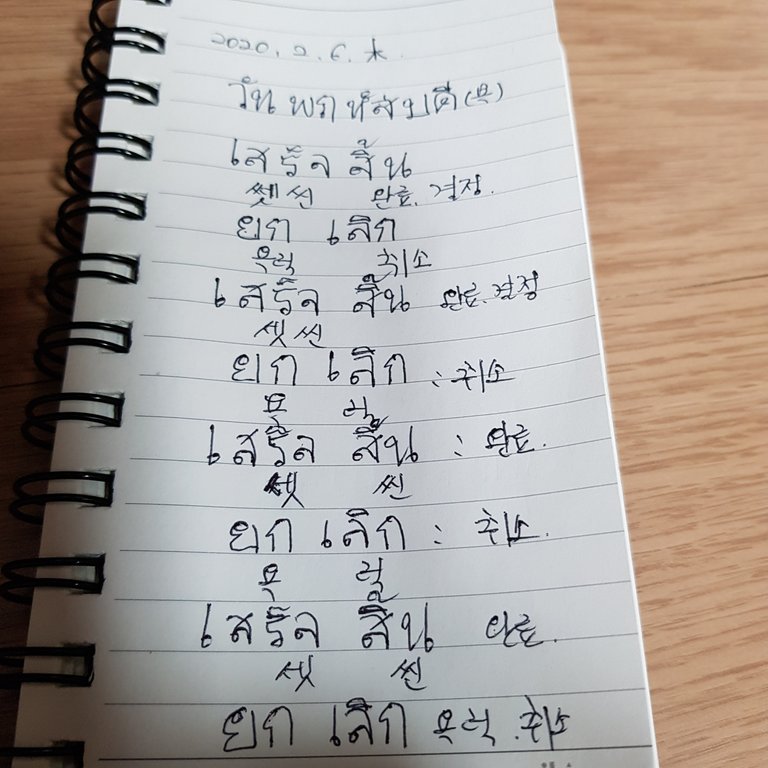 2020. 2. 6. 木.
วัน พฤหัสบดี (목)
เสร็จ สิ้น
쎗 씬 완료. 결정.
ยก เลิก
욕럭 취소
เสร็จ สิ้น 완료. 결정
셋 씬
ยก เลิก : 취소
욕 럭
เสร็จ สิ้น : 완료.
셋 씬
ยก เลิก : 취소.
욕 럭
เสร็จ สิ้น 완료.
셋 씬
ยก เลิก 욕럭. 취소